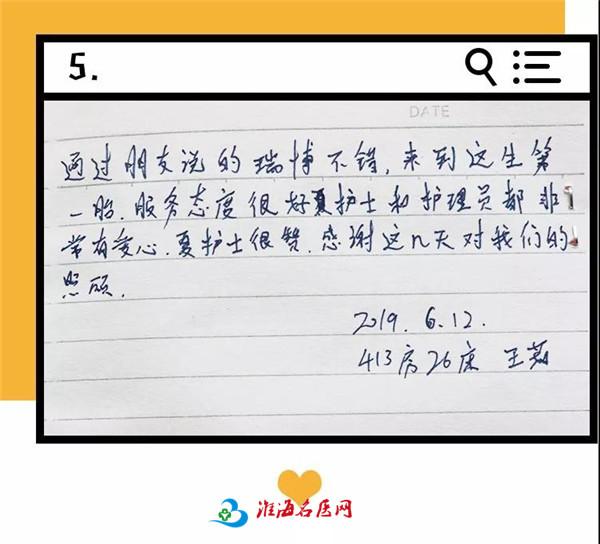 5.
DATE
通过朋友说的瑞博不错,来到这生第
一胎.服务态度很好夏护士和护理员都非
常有爱心.夏护士很赞.感谢这几天对我们的
照顾.
2019.6.12.
413房26床 王
淮海名医网